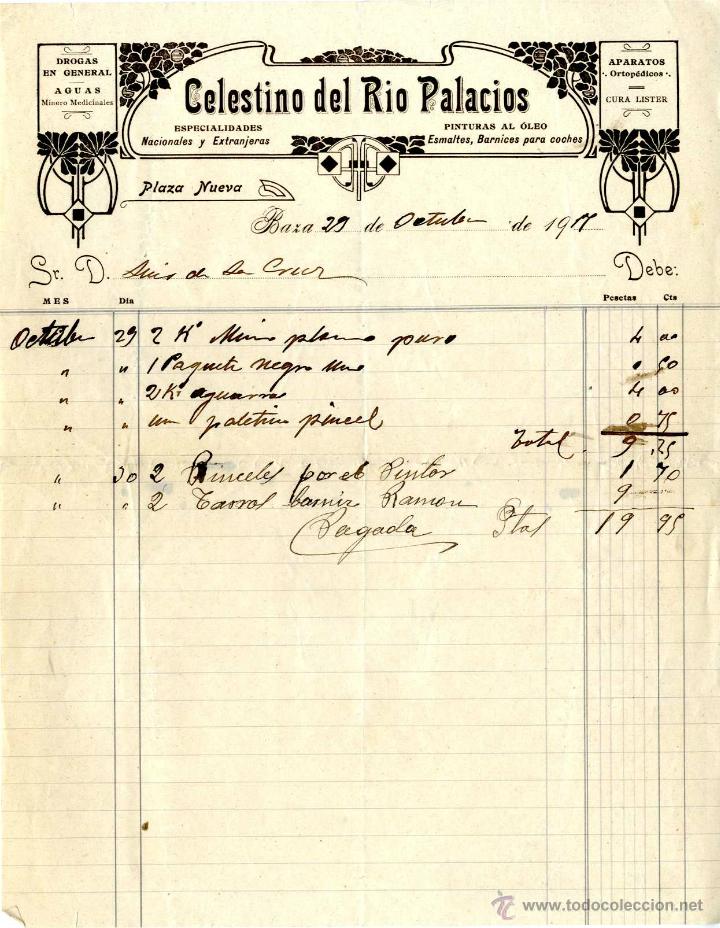 DROGAS
EN GENERAL
AGUAS
Minero Medicinales
Celestino del Rio Palacios
ESPECIALIDADES
Nacionales y Extranjeras
PINTURAS AL ÓLEO
Esmaltes, Barnices para coches
APARATOS
Ortopédicos
CURA LISTER
Plaza Nueva
Baza 29 de Octubre de 1917
Sr. D. Luis de La Cruz Debe:
MES Dia Pesetas Cts
Octubre 29 2 Ks plomo puro 4 00
" " 1 Paquete negro 0 50
" " 2 Ks aguarras 4 00
" " un pincel 0 75
Total. 9,25
" 30 2 Pinceles por el Pintor 1 70
" " 2 Tarros barniz Ramon 9
Pagada Ptas 19 95
todocoleccion
www.todocoleccion.net